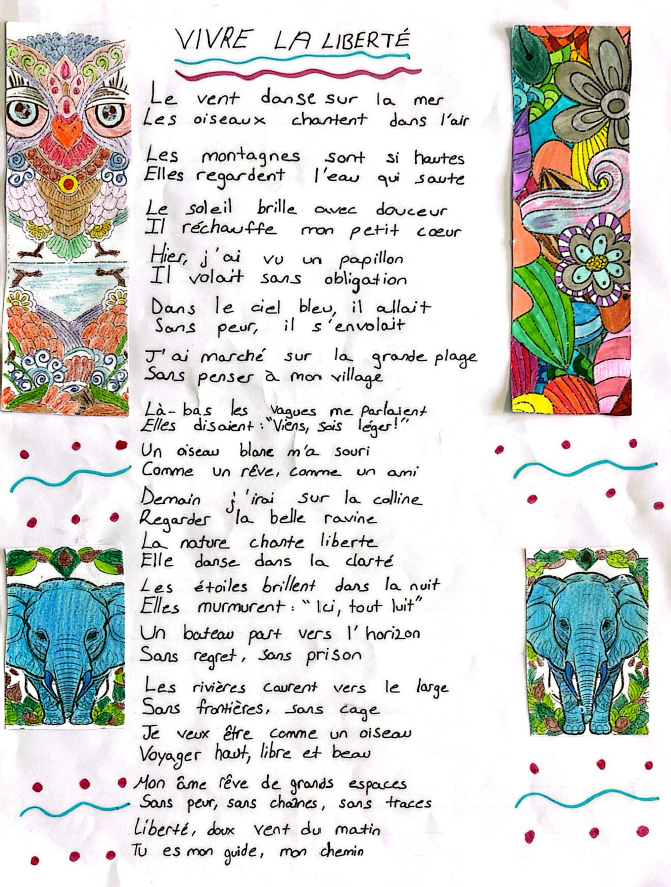 VIVRE LA LIBERTÉ
Le vent danse sur la mer
Les oiseaux chantent dans l'air
Les montagnes sont si hautes
Elles regardent l'eau qui saute
Le soleil brille avec douceur
Il réchauffe mon petit cœur
Hier, j'ai vu un papillon
Il volait sans obligation
Dans le ciel bleu, il allait
Sans peur, il s'envolait
J'ai marché sur la grande plage
Sans penser à mon village
Là-bas les vagues me parlaient
Elles disaient : "Viens, sois léger!"
Un oiseau blanc m'a souri
Comme un rêve, comme un ami
Demain j'irai sur la colline
Regarder la belle ravine
La nature chante liberte
Elle danse dans la clarté
Les étoiles brillent dans la nuit
Elles murmurent : "Ici, tout luit"
Un bateau part vers l'horizon
Sans regret, sans prison
Les rivières courent vers le large
Sans frontières, sans cage
Je veux être comme un oiseau
Voyager haut, libre et beau
Mon âme rêve de grands espaces
Sans peur, sans chaînes, sans traces
Liberté, doux vent du matin
Tu es mon guide, mon chemin